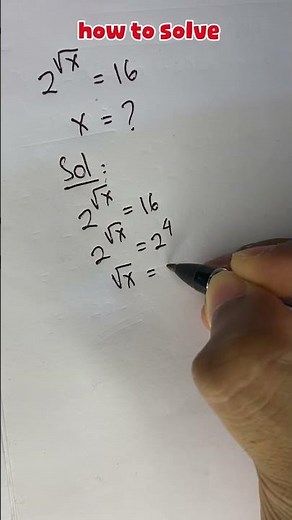 how to solve
2^√x = 16
x = ?
Sol:
2^√x = 16
2^√x = 2^4
√x =